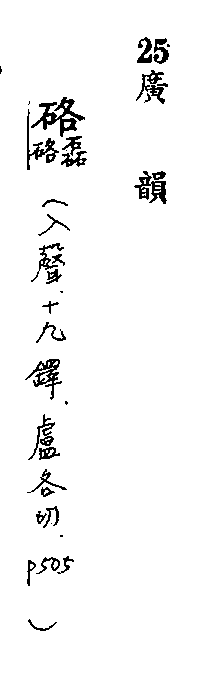 25廣韻
硌
磊硌
(入聲.十九鐸.盧各切.p505)